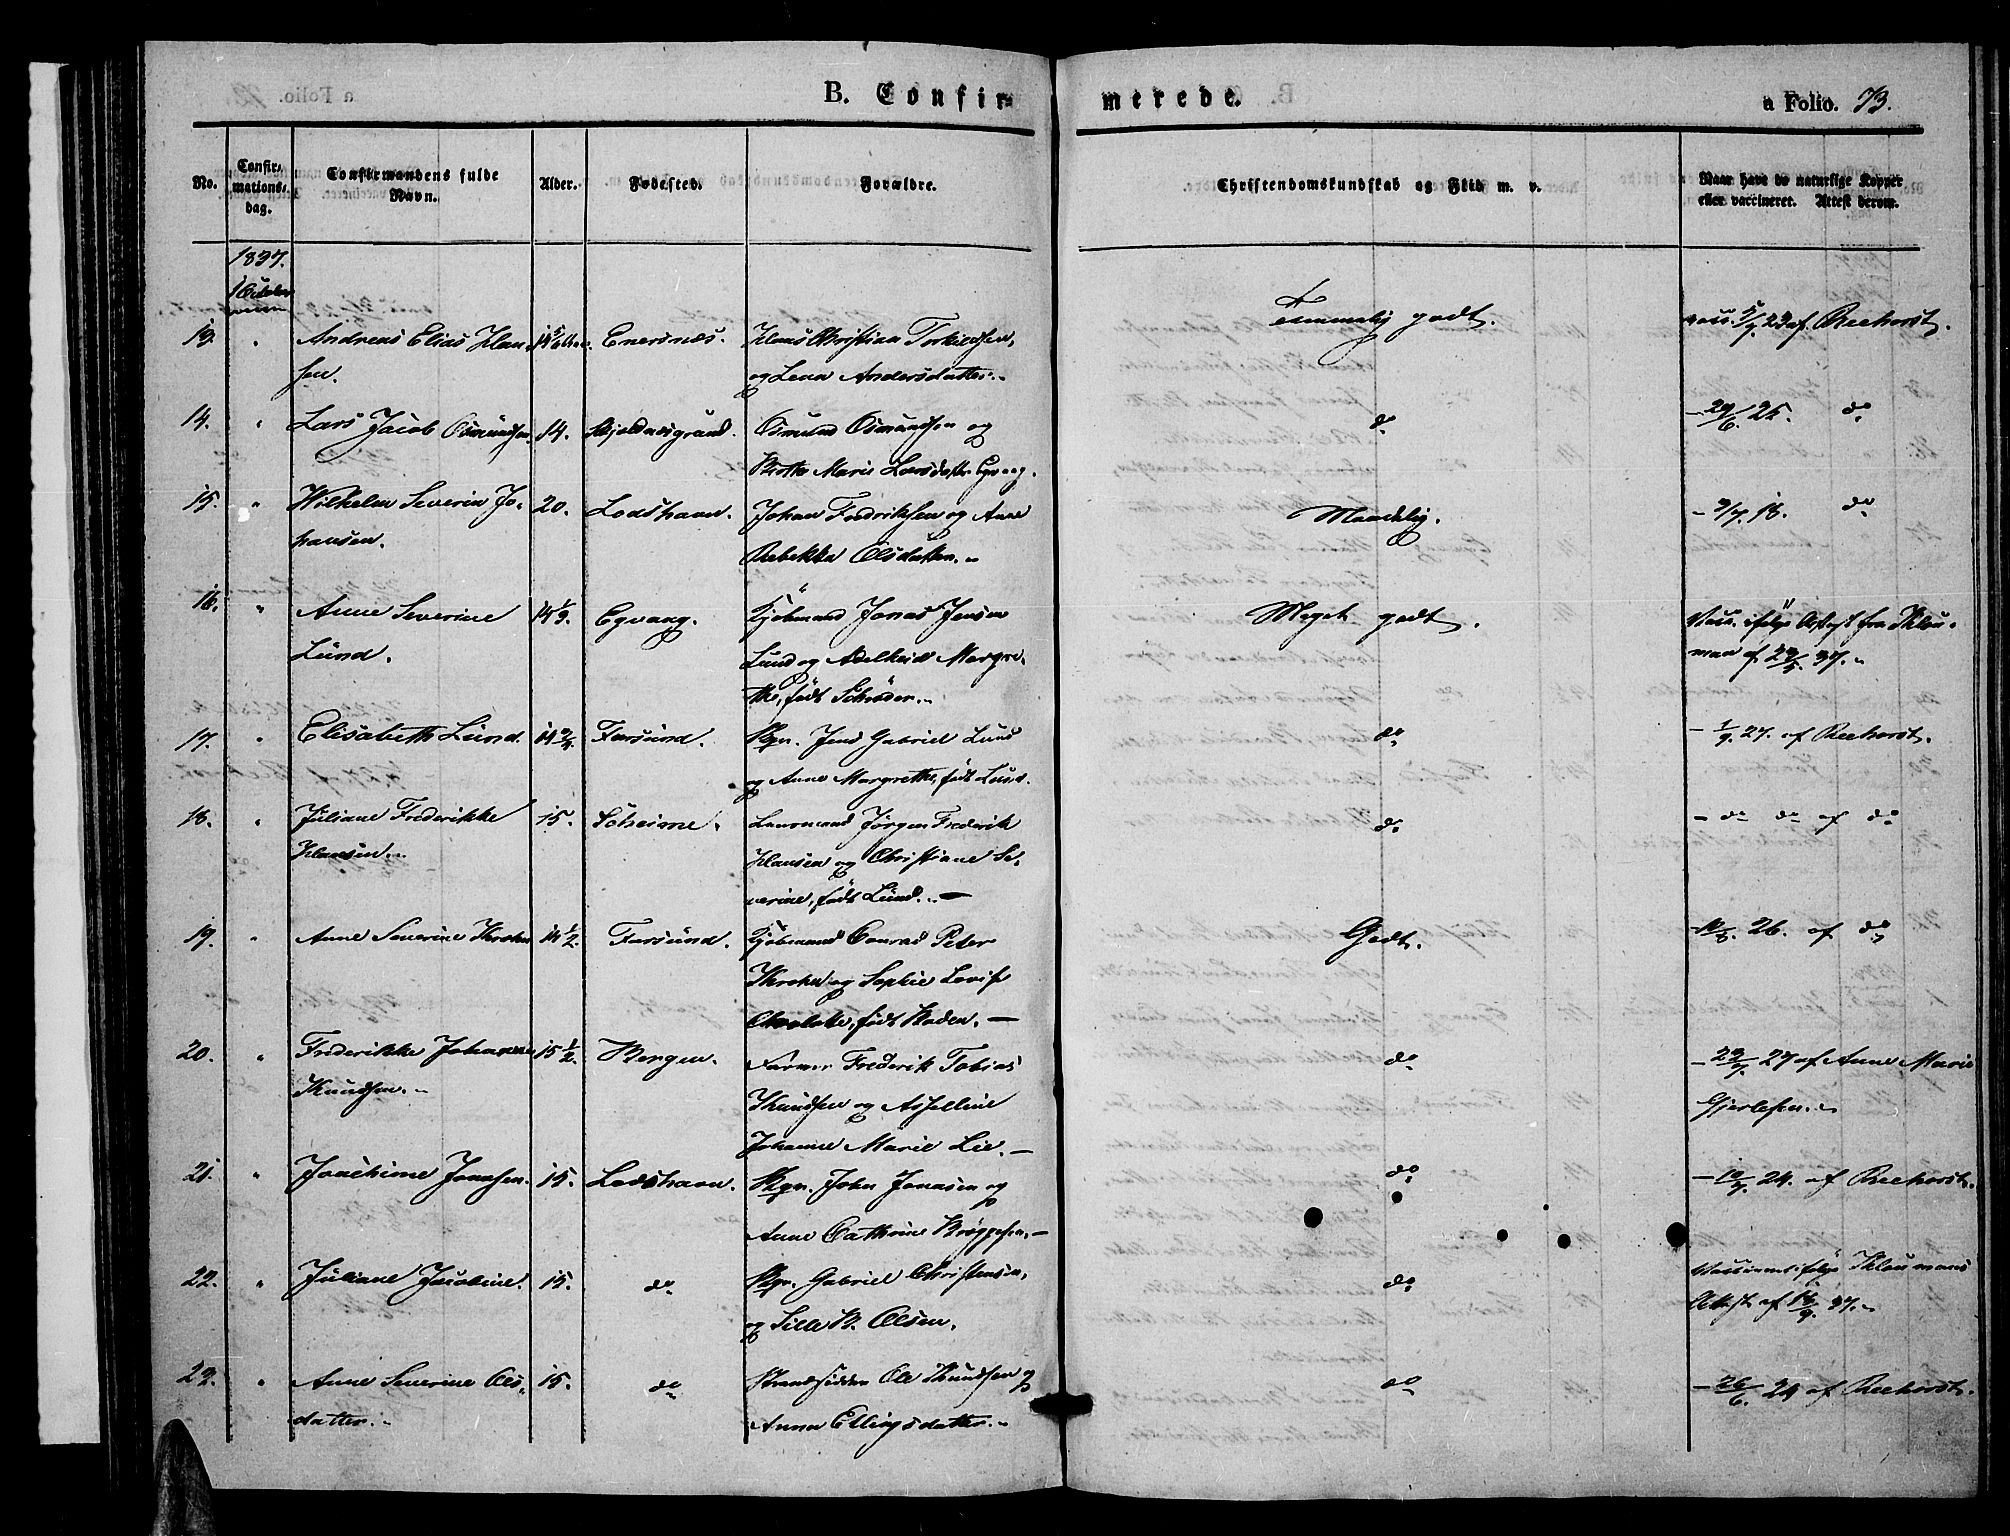 B. Confir- merede. a Folio. 73.
No. Confir-mations-dag. Confirmandens fulde Navn. Alder. Fødested. Forældre. Christendomskundskab og Flid m. v. Naar have de naturlige Kopper eller vaccineret. Attest derom.
1837.
1 October
13. " Andreas Elias Hansen. Enersnæs. Hans Christian Torkildsen, og Lena Andersdatter. Temmelig godt. vacc. 5/9 23 af Reehorst.
14. " Lars Jacob Osmundsen. 14. Skjoldnæsgrund. Osmund Osmundsen og Berthe Marie Larsdattr Egvaag. do - 29/6. 25. do
15. " Wilhelm Severin Johansen. 20. Lodshavn. Johan Fredriksen og Ane Rebekka Olsdatter. Maadelig. - 2/7. 18. do
16. " Anne Severine Lund. 14 1/3. Egvaag. Kjøbmand Jonas Jensen Lund og Adelheid Margrethe, født Schrøder. Meget godt. Vacc. ifølge Attest fra Klouman af 29/5. 37.
17. " Elisabeth Lund. 14 3/4. Farsund. Skpr. Jens Gabriel Lund og Anne Margrethe, født Lund. do - 1/9. 27. af Reehorst.
18. " Juliane Frederikke Hansen. 15. Søheime. Lensmand Jørgen Frederik Hansen og Christiane Severine, født Lund. do - do do af do
19. " Anne Severine Krohn 14 1/2. Farsund. Kjøbmand Conrad Peter Krohn og Sophie Lovise Charlotte, født Boden. Godt. 26. af do
20. " Frederikke Johanne Knudsen. 15 1/2. Bergen. Farver Frederik Tobias Knudsen og Asselline Johanne Marie Lie. do - 29/7. 27 af Anne Marie Gjertsen.
21. " Joachime Jonasen. 15. Lodshavn. Skpr. John Jonasen og Anne Cathrine Brøggesen. do - 10/7. 24. af Reehorst.
22. " Juliane Jacobine. 15. do Skpr. Gabriel Christensen, og Sille B. Olsen. do Vaccineret ifølge Kloumans Attest af 18/9. 37.
23. " Anne Severine Olsdatter. 15. do Strandsidder Ole Knudsen og Anna Ellingsdatter. do - 26/6. 24 af Reehorst.